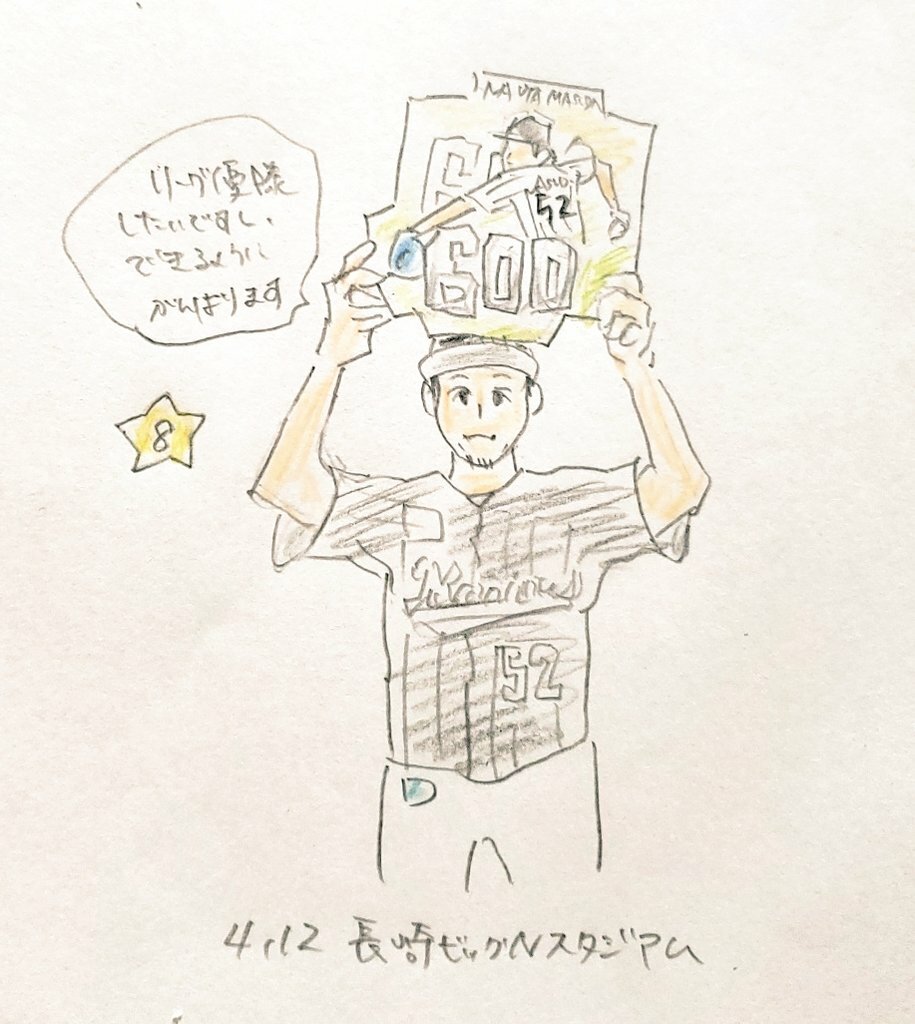 52
600
リーグ優勝
したいですし、
できるように
がんばります
8
52
4.12 長崎ビッグNスタジアム